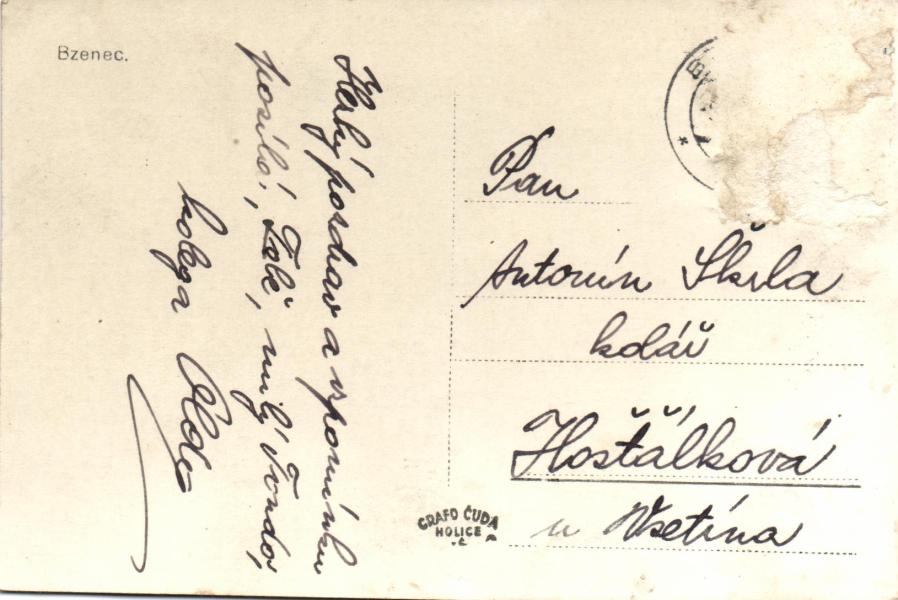 Bzenec.
Hezký pozdrav a vzpomínku
posílá Tobě, milý Tondo,
kolega Olda
Pan
Antonín Škrla
kolář
Hošťálková
u Vsetína
GRAFO ČUDA
HOLICE
v. Č.